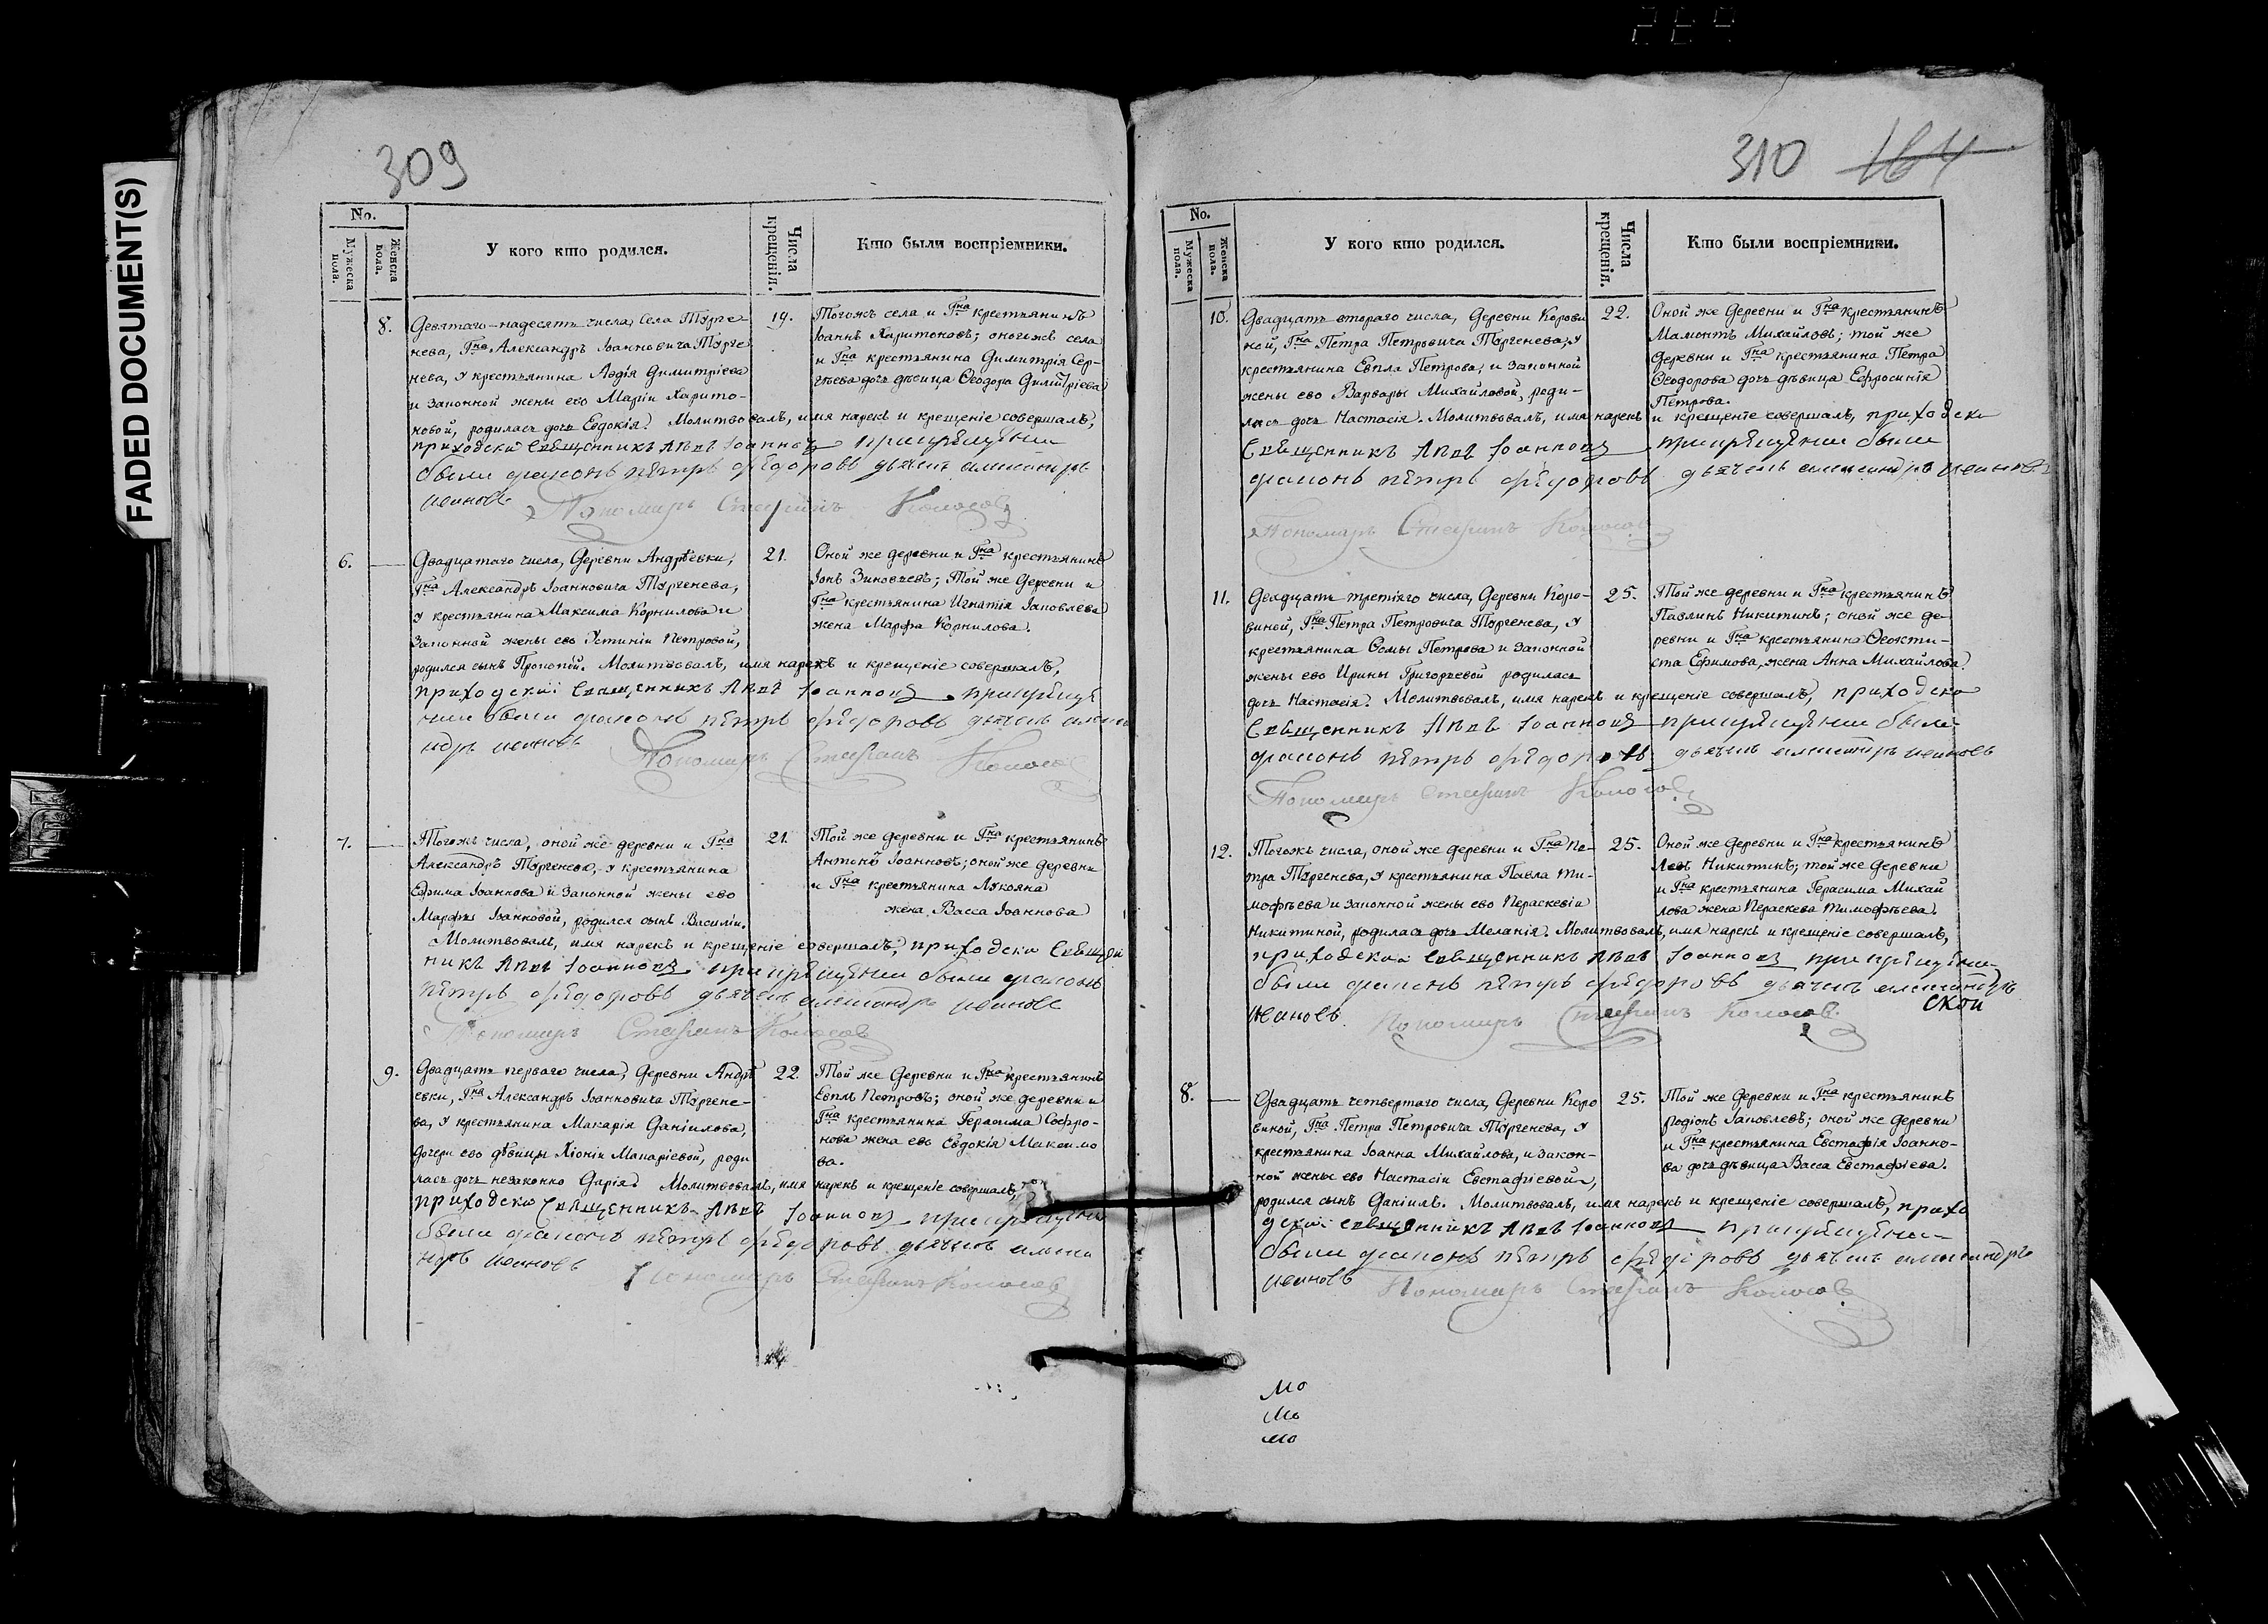 FADED DOCUMENT(S)
309
No.
Мужеска пола.
Женска пола.
У кого кто родился.
Числа крещенія.
Кто были воспріемники.
8.
Девятаго-надесять числа, Села Турге-
нева, Гна Александръ Іоанновича Турге
нева, у крестьянина Авдія Димитріева
и Законной жены ево Маріи Харито-
новой, родилась дочь Евдокія. Молитвовалъ, имя нарекъ и крещеніе совершалъ,
приходски Священникъ Левъ Іоанновъ при крещении
были диаконъ петръ фёдоровъ дьячекъ александръ
ивановъ Пономарь Стефанъ Колосовъ
19.
Тогожъ села и Гна крестьянинъ
Іоаннъ Харитоновъ; оногожъ села
и Гна крестьянина Димитрія Сер-
гѣева дочь дѣвица Ѳеодора Димитріева
6.
Двадцатаго числа, Деревни Андрѣевки,
Гна Александръ Іоанновича Тургенева,
у крестьянина Максима Корнилова и
Законной жены ево Устиніи Петровой,
родился сынъ Прокопій. Молитвовалъ, имя нарекъ и крещеніе совершалъ,
приходскиі Священникъ Левъ Іоанновъ при креще
нии были диаконъ петръ фёдоровъ дьячекъ алекса
ндръ ивановъ Пономарь Стефанъ Колосовъ
21.
Оной же деревни и Гна крестьянинъ
Іонъ Зиновьевъ; Той же Деревни и
Гна крестьянина Игнатія Іаковлева
жена Марфа Корнилова.
7.
Тогожъ числа, оной же деревни и Гна
Александръ Тургенева, у крестьянина
Ефима Іоаннова и Законной жены ево
Марфы Іоанновой, родился сынъ Василіи.
Молитвовалъ, имя нарекъ и крещеніе совершалъ, приходски Свяще
никъ Левъ Іоанновъ при крещении были диаконъ
петръ фёдоровъ дьячекъ александръ ивановъ
Пономарь Стефанъ Колосовъ
21.
Той же деревни и Гна крестьянинъ
Антоній Іоанновъ; оной же деревни
и Гна крестьянина Лукояна
жена Васса Іоаннова
9.
Двадцать перваго числа, Деревни Андрѣ
евки, Гна Александръ Іоанновича Тургене-
ва, у крестьянина Макарія Даніилова,
дочери ево дѣвицы Хіоніи Макаріевой, роди
лась дочь незаконно Дарія. Молитвовалъ, имя нарекъ и крещеніе совершалъ,
приходски Священникъ Левъ Іоанновъ при крещении
были диаконъ петръ фёдоровъ дьячекъ алекса
ндръ ивановъ Пономарь Стефанъ Колосовъ
22.
Той же Деревни и Гна крестьянинъ
Евплъ Петровъ; оной же деревни и
Гна крестьянина Герасима Софро-
нова жена ево Евдокія Максимо
ва.
310 164
No.
Мужеска пола.
Женска пола.
У кого кто родился.
Числа крещенія.
Кто были воспріемники.
10.
Двадцать втораго числа, Деревни Корови
ной, Гна Петра Петровича Тургенева, у
крестьянина Евпла Петрова, и Законной
жены ево Варвары Михайловой, роди-
лась дочь Настасія. Молитвовалъ, имя нарекъ и крещеніе совершалъ, приходски
Священникъ Левъ Іоанновъ при крещении были
диаконъ петръ фёдоровъ дьячекъ александръ ивановъ
Пономарь Стефанъ Колосовъ
22.
Оной же Деревни и Гна крестьянинъ
Мамонтъ Михайловъ; той же
Деревни и Гна крестьянина Петра
Ѳеодорова дочь дѣвица Ефросинія
Петрова.
11.
Двадцать третіяго числа, Деревни Коро-
виной, Гна Петра Петровича Тургенева, у
крестьянина Ѳомы Петрова и Законной
жены ево Ирины Григорьевой родилась
дочь Настасія. Молитвовалъ, имя нарекъ и крещеніе совершалъ, приходски
Священникъ Левъ Іоанновъ при крещении были
диаконъ петръ фёдоровъ дьячекъ александръ ивановъ
Пономарь Стефанъ Колосовъ
25.
Той же деревни и Гна крестьянинъ
Павлинъ Никитинъ; оной же де
ревни и Гна крестьянина Ѳеокти-
ста Ефимова, жена Анна Михайлова.
12.
Тогожъ числа, оной же деревни и Гна Пе-
тра Тургенева, у крестьянина Павла Ти-
мофѣева и законной жены ево Параскевіи
Никитиной, родилась дочь Меланія. Молитвовалъ, имя нарекъ и крещеніе совершалъ,
приходскиі Священникъ Левъ Іоанновъ при крещении
были диаконъ петръ фёдоровъ дьячекъ александръ
ивановъ Пономарь Стефанъ Колосовъ.
скои
25.
Оной же Деревни и Гна крестьянинъ
Левъ Никитинъ; той же Деревни
и Гна крестьянина Герасима Михай
лова жена Параскева Тимофѣева.
8.
Двадцать четвертаго числа, Деревни Коро
виной, Гна Петра Петровича Тургенева, у
крестьянина Іоанна Михайлова, и закон-
ной жены ево Настасіи Евстафіевой,
родился сынъ Даніилъ. Молитвовалъ, имя нарекъ и крещеніе совершалъ, прихо
дскиі священникъ Левъ Іоанновъ при крещении
были диаконъ петръ фёдоровъ дьячекъ александръ
ивановъ Пономарь Стефанъ Колосовъ
25.
Той же Деревни и Гна крестьянинъ
Родіонъ Іаковлевъ; оной же Деревни
и Гна крестьянина Евстафія Іоанно-
ва дочь дѣвица Васса Евстафіева.
Мо
Мо
Мо